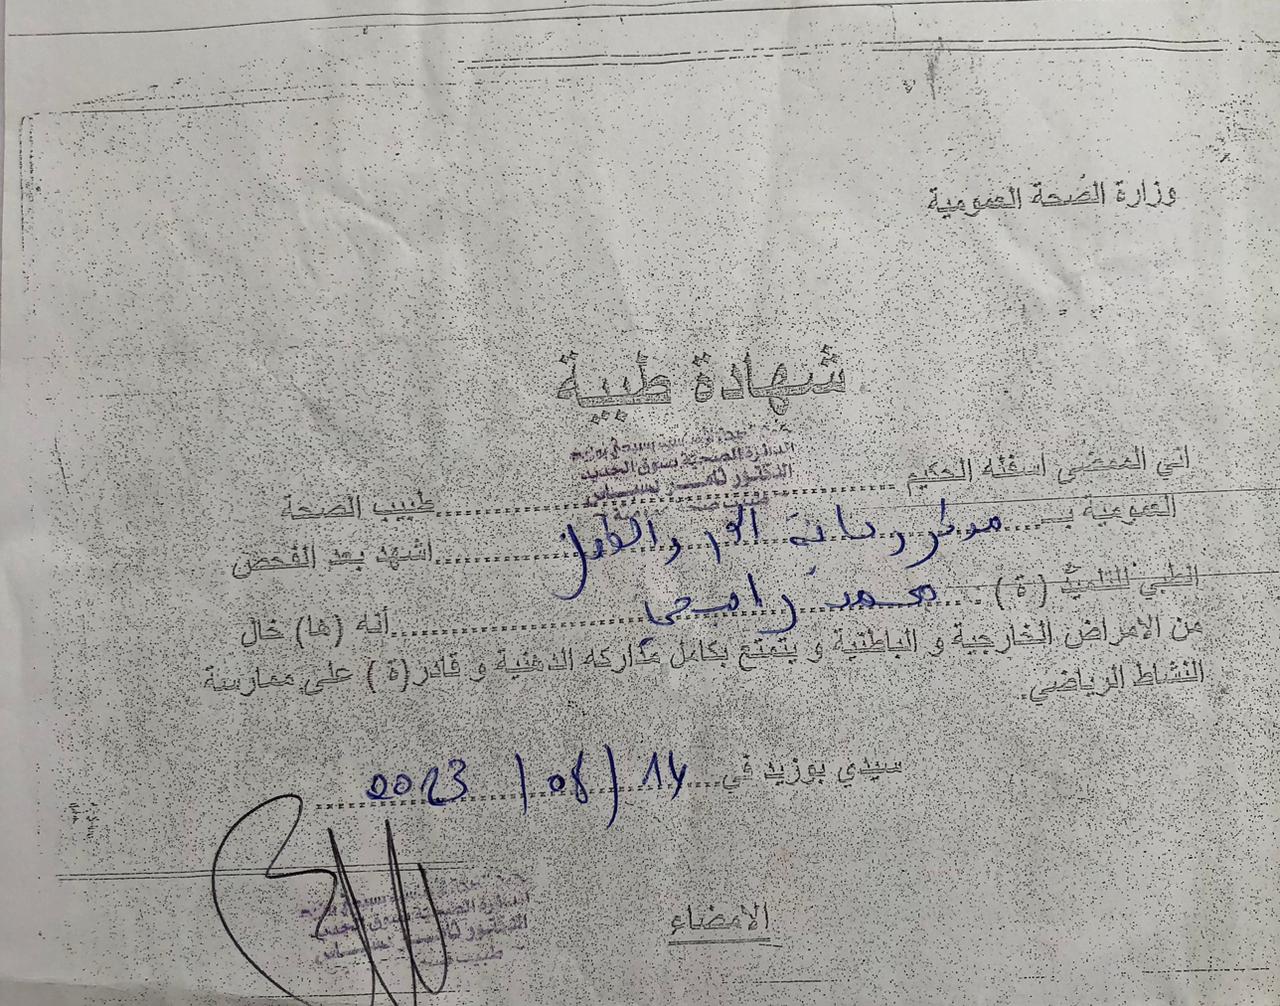 وزارة الصحة العمومية
شهادة طبية
الدائرة الصحية بسوق الجديد
الدكتور ثامر
اني الممضى اسفله الحكيم ........ طبيب الصحة
العمومية بـ... مركز رعاية الأم والطفل ........ اشهد بعد الفحص
الطبي للتلميذ (ة) ... محمد رابحي ........ أنه (ها) خال
من الامراض الخارجية و الباطنية و يتمتع بكامل مداركه الذهنية و قادر (ة) على ممارسة
النشاط الرياضي.
سيدي بوزيد في... 14 / 08 / 2023
الامضاء
الدائرة الصحية بسوق الجديد
الدكتور ثامر